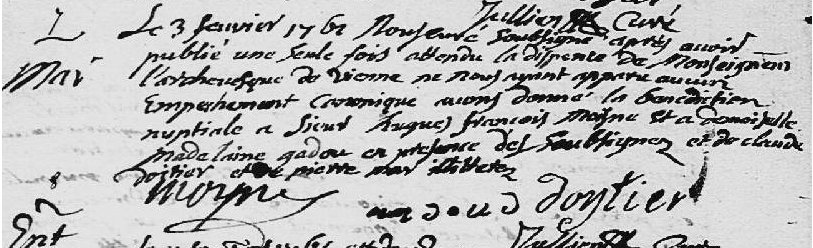 Jullien Curé
L Le 3 janvier 1761 Nous curé soubsigné après avoir
Mar publié une seule fois attendu la dispense de Monseigneur
l'archevesque de vienne ne nous ayant apparu aucun
Empeshement Canonique avons donné la benediction
nuptiale a sieur hugues françois moyne et a demoiselle
madelaine gadou en presence des soubsignez et de claude
et de pierre mar illiterez
moyne dortier
2
Ent Jullien Curé